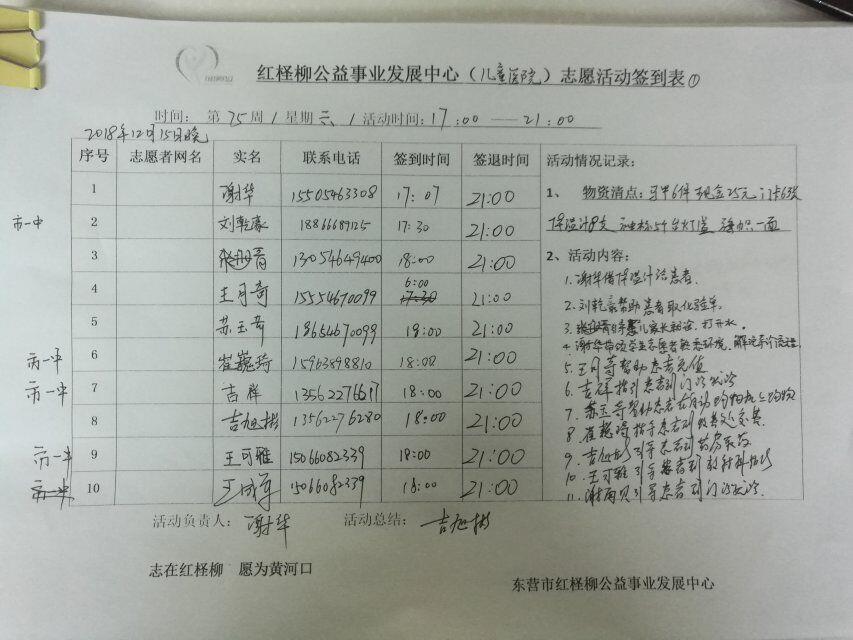 红柽柳公益事业发展中心（儿童医院）志愿活动签到表①
时间： 第 75 周 / 星期 六 / 活动时间：17：00 —— 21：00
2018年12月15日晚
序号 志愿者网名 实名 联系电话 签到时间 签退时间 活动情况记录：
1 谢华 15505463308 17：07 21:00
市一中 2 刘乾豪 18866689125 17:30 21:00
3 13054649400 18:00 21:00
4 王可奇 15554670099 6:00 17:30 21:00
5 苏玉奇 18664670099 18:00 21:00
市一中 6 崔巍琦 15963898810 18:00 21:00
市一中 7 吉祥 13562276617 18:00 21:00
8 吉旭彬 13562276280 18:00 21:00
市一中 9 王可雅 15066082339 18:00 21:00
市一中 10 15066082339 18:00 21:00
1、 物资清点：马甲6件 现金25元 门卡6张
体温计8支 台灯1盏 一面
2、活动内容：
1.谢华借体温计给患者.
2.刘乾豪帮助患者取化验单.
3. 打开水.
4.谢华带领学生志愿者熟悉环境.
5.王可奇帮助患者充值
6.吉祥指引患者到门诊就诊
7.苏玉奇帮助患者在自动购物机上购物
8 崔巍琦指导患者到收费处交费
9.吉旭彬引导患者到药房取药
10.王可雅引导患者到放射科
11.引导患者到门诊就诊.
活动负责人：谢华 活动总结：吉旭彬
志在红柽柳 愿为黄河口
东营市红柽柳公益事业发展中心